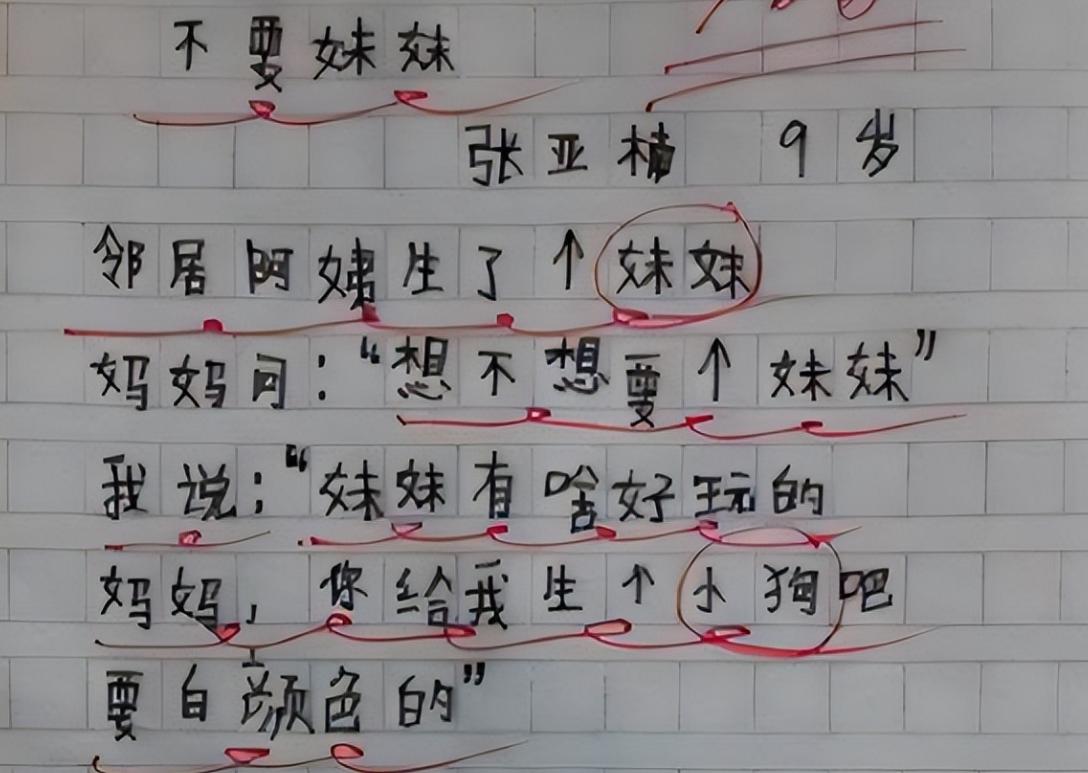 不要妹妹
张亚楠 9岁
邻居阿姨生了个妹妹
妈妈问:“想不想要个妹妹”
我说:“妹妹有啥好玩的
妈妈,你给我生个小狗吧
要白颜色的”